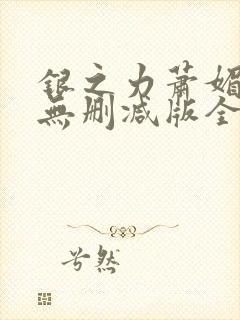 银之力萧媚
無删减版全
兮然